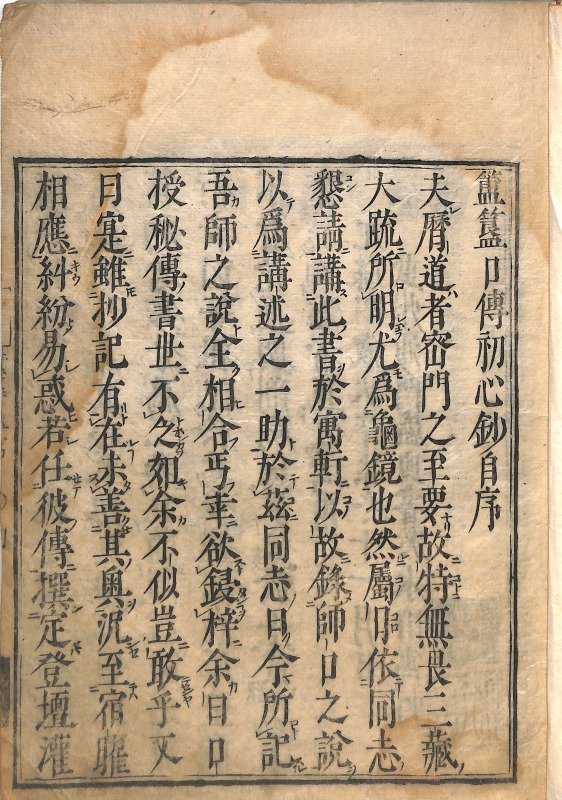 簠簋口傳初心鈔自序
夫曆道者密門之至要故特無畏三藏
大䟽所明尤爲龜鏡也然屬日依同志
懇請講此書於寓軒以故錄師口之說
以爲講述之一助於茲同志曰今所記
吾師之說全相合丐幸欲鋟梓余曰口
授秘傳書世不久如余不似豈敢乎又
目寔雖抄記有在未善其奧況至宿曜
相應糾紛易惑若任彼傳撰定登壇灌